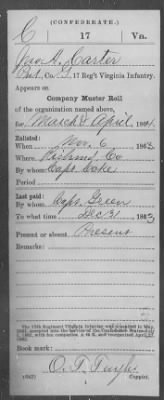 (CONFEDERATE.)
C 17 Va.
Jno. A. Carter
Pvt, Co. 17 Reg't Virginia Infantry.
Appears on
Company Muster Roll
of the organization named above,
for March & April, 1864
Enlisted:
When Nov. 6, 1863
Where Richmond Co
By whom Capt. Coke
Period
Last paid:
By whom Capt. Green
To what time Dec 31, 1863
Present or absent Present
Remarks:
Book mark:
Copyist.